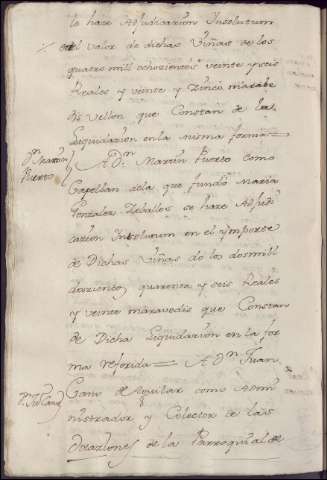 le hace Adjudicacion Insolutum
en el valor de dichas Viñas de los
quatro mil ochozientos veinte y seis
Reales y veinte y zinco marabe
dis vellon que Constan de la
Liquidacion en la misma forma=
Dn Martin
Puerto
A Dn Martin Puerto como
Capellan dela que fundó Maria
Gonzalez Zeballos se hace Adjudi
cacion Insolutum en el ymporte
de Dichas Viñas de los dosmill
doszientos quarenta y seis Reales
y veinte maravedis que Constan
de Dicha Liquidacion en la for
ma referida= A Dn Juan
Dn Juan Cano
Cano de Aguilar como Admi
nistrador y Colector de las
Dotaziones de la Parroquial de